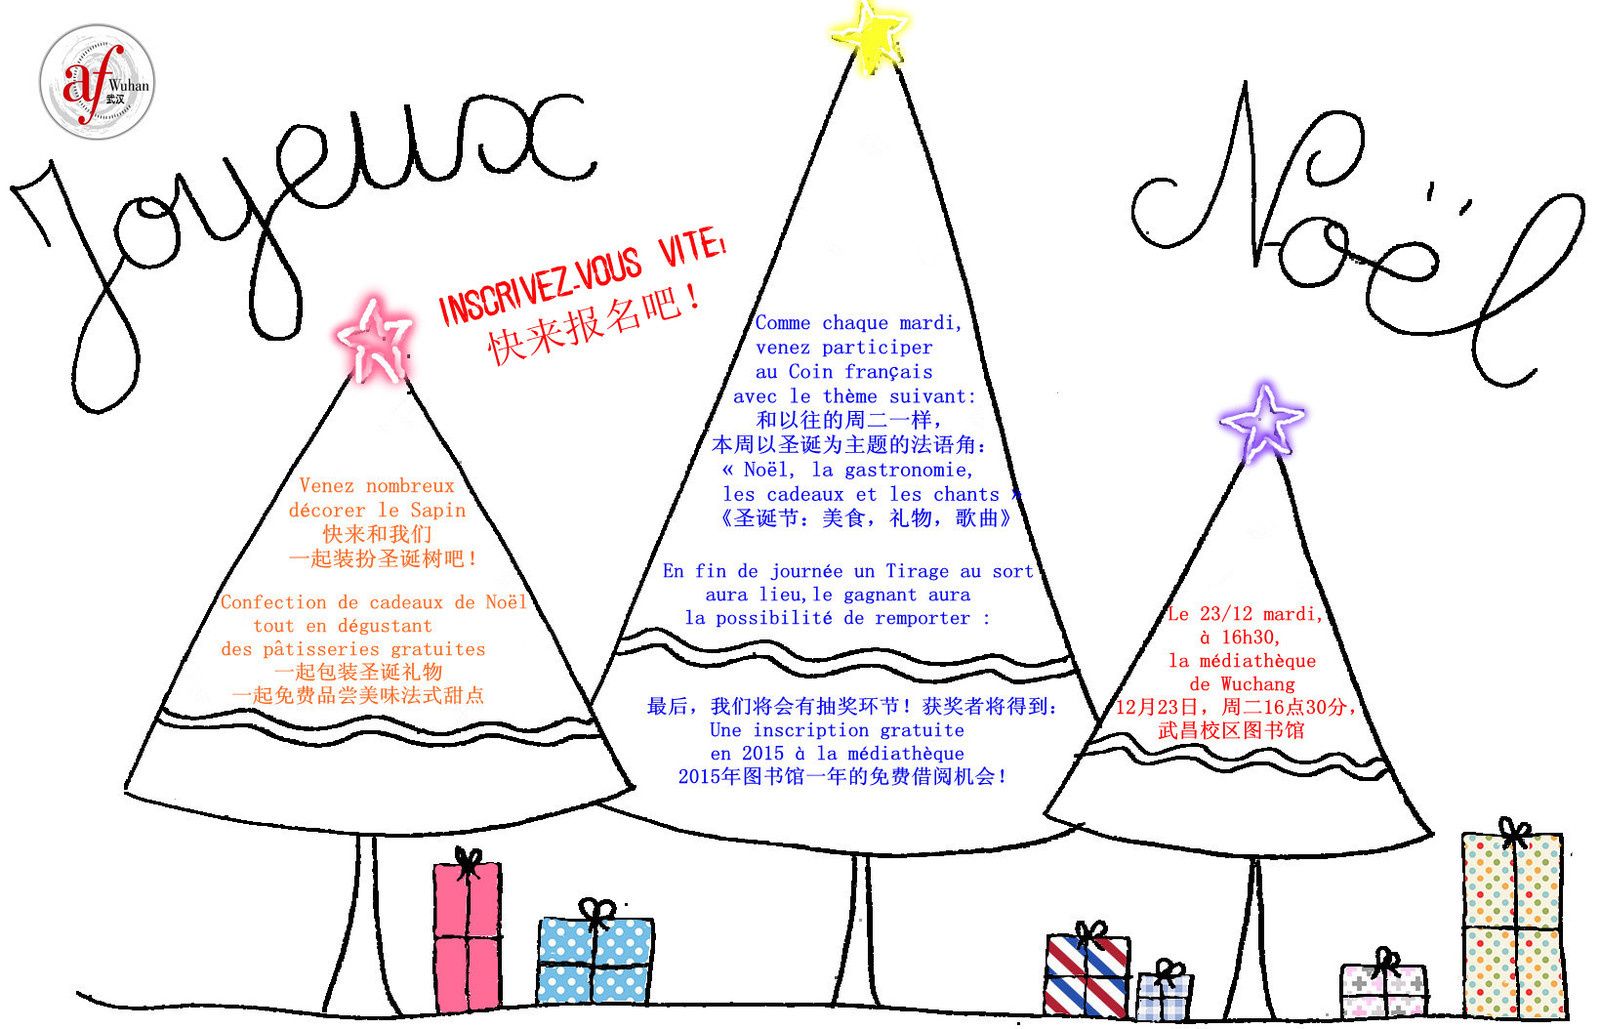 af
Wuhan
武汉
Joyeux
Noël
INSCRIVEZ-VOUS VITE!
快来报名吧！
Venez nombreux
décorer le Sapin
快来和我们
一起装扮圣诞树吧！
Confection de cadeaux de Noël
tout en dégustant
des pâtisseries gratuites
一起包装圣诞礼物
一起免费品尝美味法式甜点
Comme chaque mardi,
venez participer
au Coin français
avec le thème suivant:
和以往的周二一样，
本周以圣诞为主题的法语角：
« Noël, la gastronomie,
les cadeaux et les chants »
《圣诞节：美食，礼物，歌曲》
En fin de journée un Tirage au sort
aura lieu,le gagnant aura
la possibilité de remporter :
最后，我们将会有抽奖环节！获奖者将得到：
Une inscription gratuite
en 2015 à la médiathèque
2015年图书馆一年的免费借阅机会！
Le 23/12 mardi,
à 16h30,
la médiathèque
de Wuchang
12月23日，周二16点30分，
武昌校区图书馆